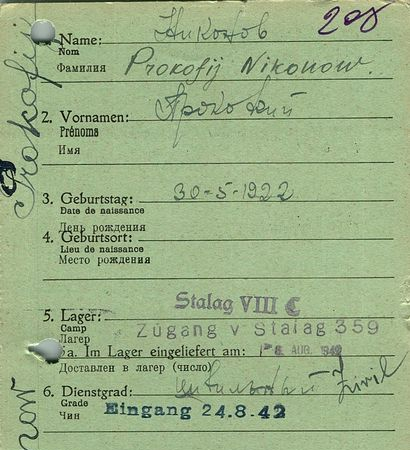 208
1. Name: Никонов
Nom
Фамилия Prokofij Nikonow.
2. Vornamen: Прокофий
Prénoms
Имя
3. Geburtstag: 30-5-1922
Date de naissance
День рождения
4. Geburtsort:
Lieu de naissance
Место рождения
5. Lager: Stalag VIII C
Camp Zugang v Stalag 359
Лагер
5a. Im Lager eingeliefert am: AUG. 1942
Доставлен в лагер (число)
6. Dienstgrad: Zivil
Grade
Чин Eingang 24.8.42
Prokofij
now